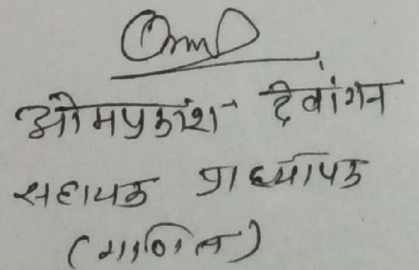 ओमप्रकाश देवांगन
सहायक प्राध्यापक
(गणित)